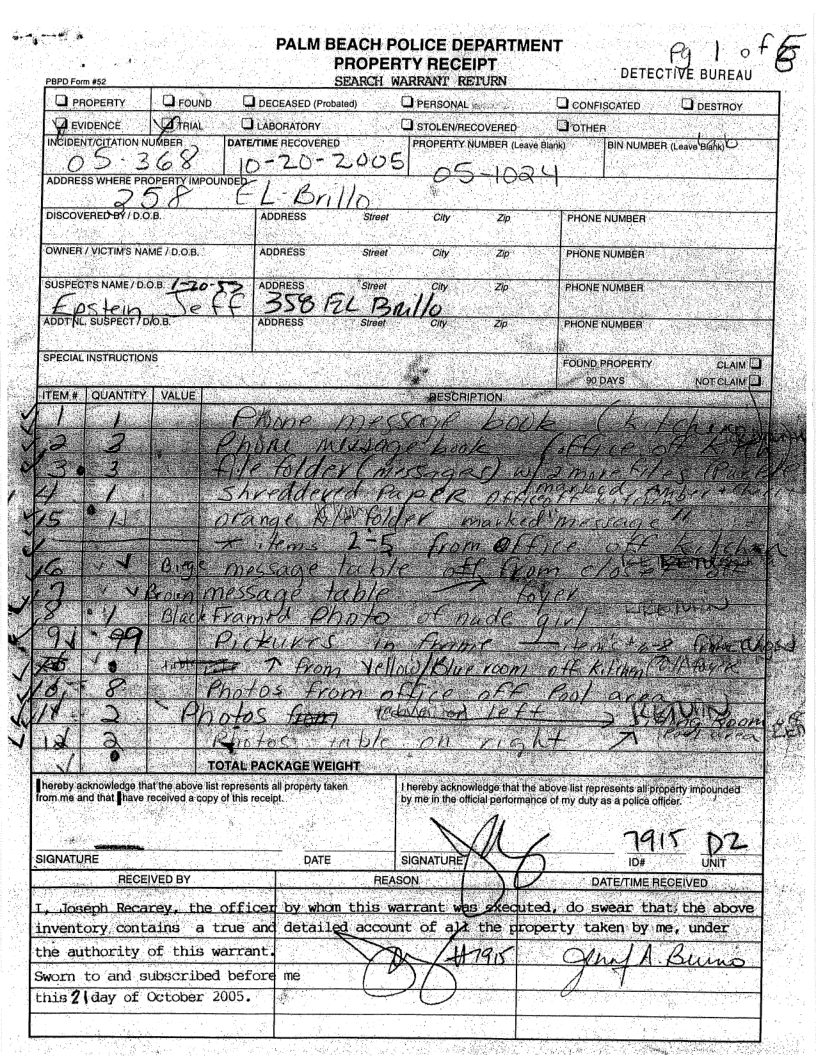 PALM BEACH POLICE DEPARTMENT
Pg 1 of 5
PROPERTY RECEIPT
DETECTIVE BUREAU
PBPD Form #52
SEARCH WARRANT RETURN
PROPERTY FOUND DECEASED (Probated) PERSONAL CONFISCATED DESTROY
EVIDENCE TRIAL LABORATORY STOLEN/RECOVERED OTHER
INCIDENT/CITATION NUMBER DATE/TIME RECOVERED PROPERTY NUMBER (Leave Blank) BIN NUMBER (Leave Blank)
05-368 10-20-2005 05-1024
ADDRESS WHERE PROPERTY IMPOUNDED
258 EL-Brillo
DISCOVERED BY / D.O.B. ADDRESS Street City Zip PHONE NUMBER
OWNER / VICTIM'S NAME / D.O.B. ADDRESS Street City Zip PHONE NUMBER
SUSPECT'S NAME / D.O.B. 1-20-53 ADDRESS Street City Zip PHONE NUMBER
Epstein Jeff 358 EL Brillo
ADDT'NL. SUSPECT / D.O.B. ADDRESS Street City Zip PHONE NUMBER
SPECIAL INSTRUCTIONS FOUND PROPERTY CLAIM
90 DAYS NOT CLAIM
ITEM # QUANTITY VALUE DESCRIPTION
1 1 Phone message book (kitchen
2 2 Phone message book (office off kitchen)
3 3 file folder (messages) w/ 2 more files
4 1 Shreddered Paper marked Amber +
office off kitchen
5 1 orange folder marked "message"
* items 2-5 from office off kitchen
6 Biege message table off from closet off
7 Brown message table foyer
8 1 Black Framed Photo of nude girl
9 Pickures in frame
↑ from Yellow/Blue room off kitchen
10 8 Photos from office off Pool area
11 2 Photos table on left
12 2 Photos table on right
TOTAL PACKAGE WEIGHT
I hereby acknowledge that the above list represents all property taken
from me and that I have received a copy of this receipt.
I hereby acknowledge that the above list represents all property impounded
by me in the official performance of my duty as a police officer.
7915 D2
SIGNATURE DATE SIGNATURE ID# UNIT
RECEIVED BY REASON DATE/TIME RECEIVED
I, Joseph Recarey, the officer by whom this warrant was executed, do swear that the above
inventory contains a true and detailed account of all the property taken by me, under
the authority of this warrant.
#7915
Sworn to and subscribed before me
this 21 day of October 2005.